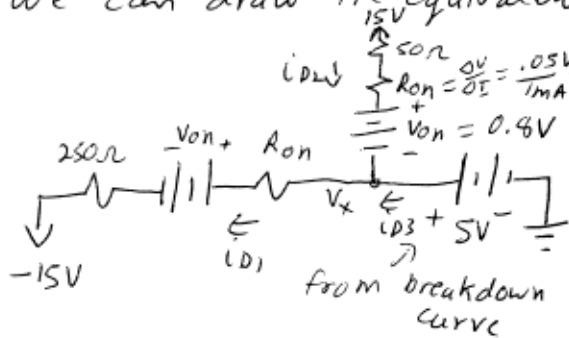 we can draw the equivalen
15V
50Ω
iD2↓ Ron = ΔV/ΔI = .05V/1mA
+
Von = 0.8V
-
250Ω -Von+ Ron
Vx ← iD3 + 5V -
← iD1
-15V
from breakdown
curve